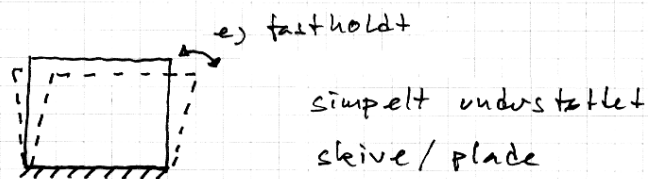 e) fastholdt
simpelt understøttet
skive / plade